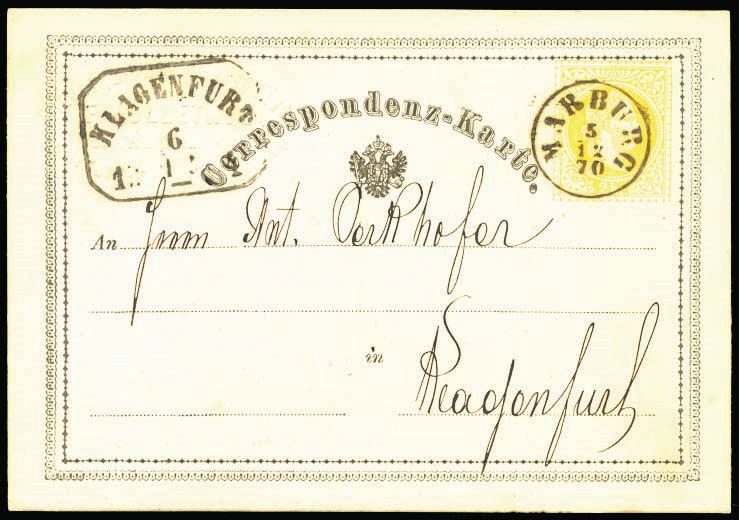 KLAGENFURT
6
Correspondenz-Karte.
MARBURG
5
12
70
An Herrn Ant.
in
Klagenfurt